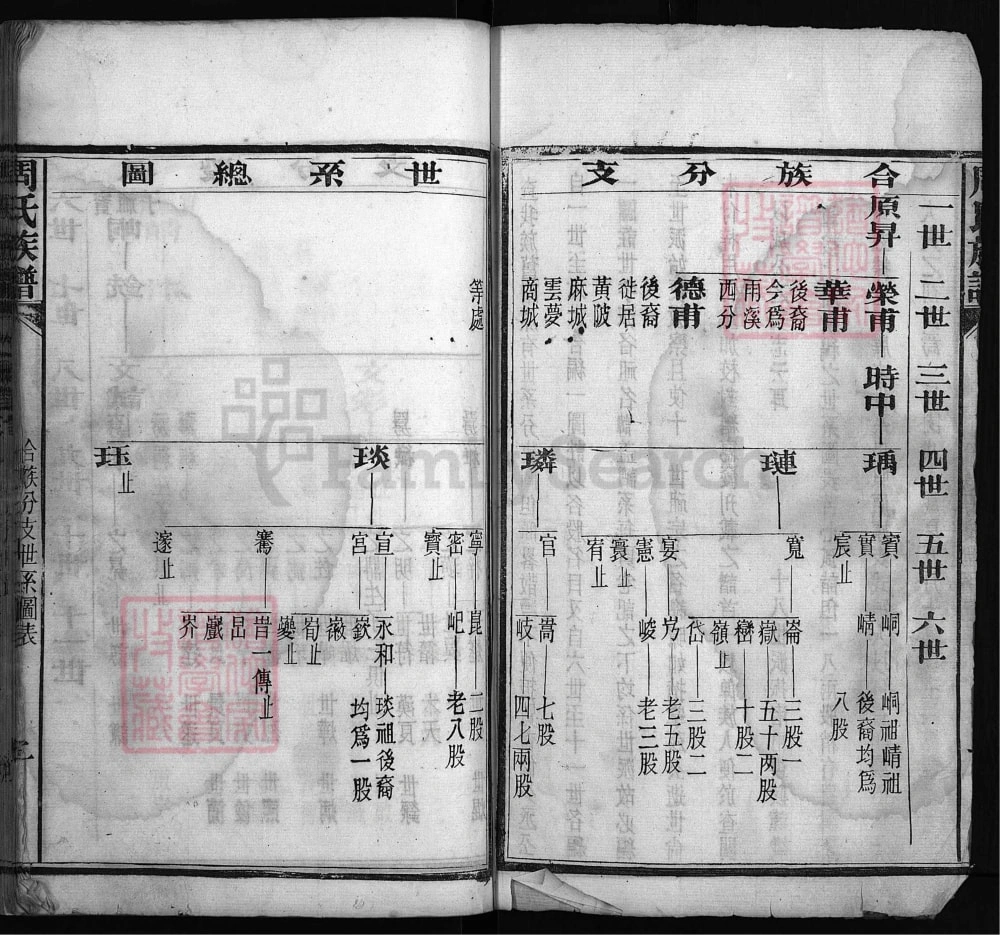 合族分支
世系總圖
一世 二世 三世 四世 五世 六世
原昇
榮甫
華甫
後裔
今爲
雨溪
西分
德甫
後裔
徙居
黄陂
麻城
雲夢
商城
等處
時中
瑀
璉
璘
琰
珏止
賓
實
宸止
寬
宴
憲
寰止
宥止
官
寧
密
寶止
宣
宮
騫
邃止
峒
峒祖崝祖
崝
後裔均爲
八股
崙
三股一
嶽
五十两股
巒
十股二
嶺止
岱
三股二
老五股
峻
老三股
嵩
七股
岐
四七兩股
崑
二股
屺
老八股
永和
琰祖後裔
嶔
均爲一股
筍止
夔止
昔一傳止
岊
巘
岕
周氏族譜
合族分支世系圖表
FamilySearch